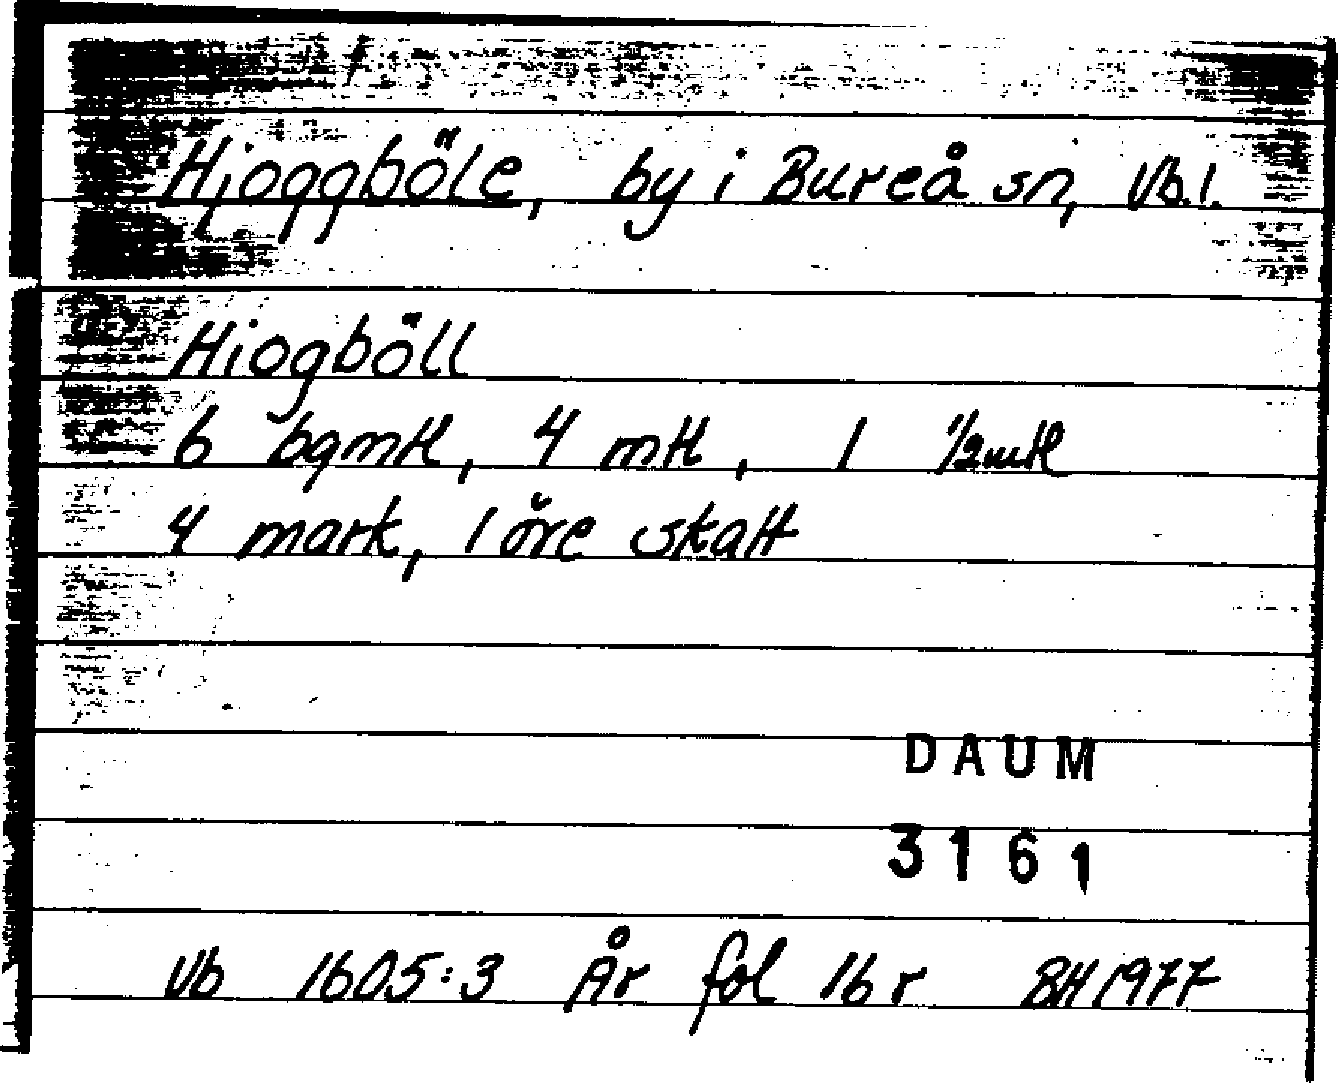 Hjoggböle, by i Bureå sn, Vb.l.
Hiogböll
6 bgmtl, 4 mtl, 1 1/2mtl
4 mark, 1 öre skatt
DAUM
3161
Vb 1605:3 År fol 16 r BH 1977